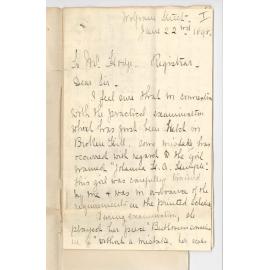 Wolfram Street. I
June 22nd 1898.
To Mr. Hodge. Registrar.
Dear Sir.
I feel sure that in connection
with the practical examination
which has just been held in
Broken Hill, some mistake has
occurred with regard to the girl
named
this girl was carefully trained
by me & was in advance of the
requirements in the printed
During examination, she
played her piece "Beethoven
in G" without a mistake, her ears